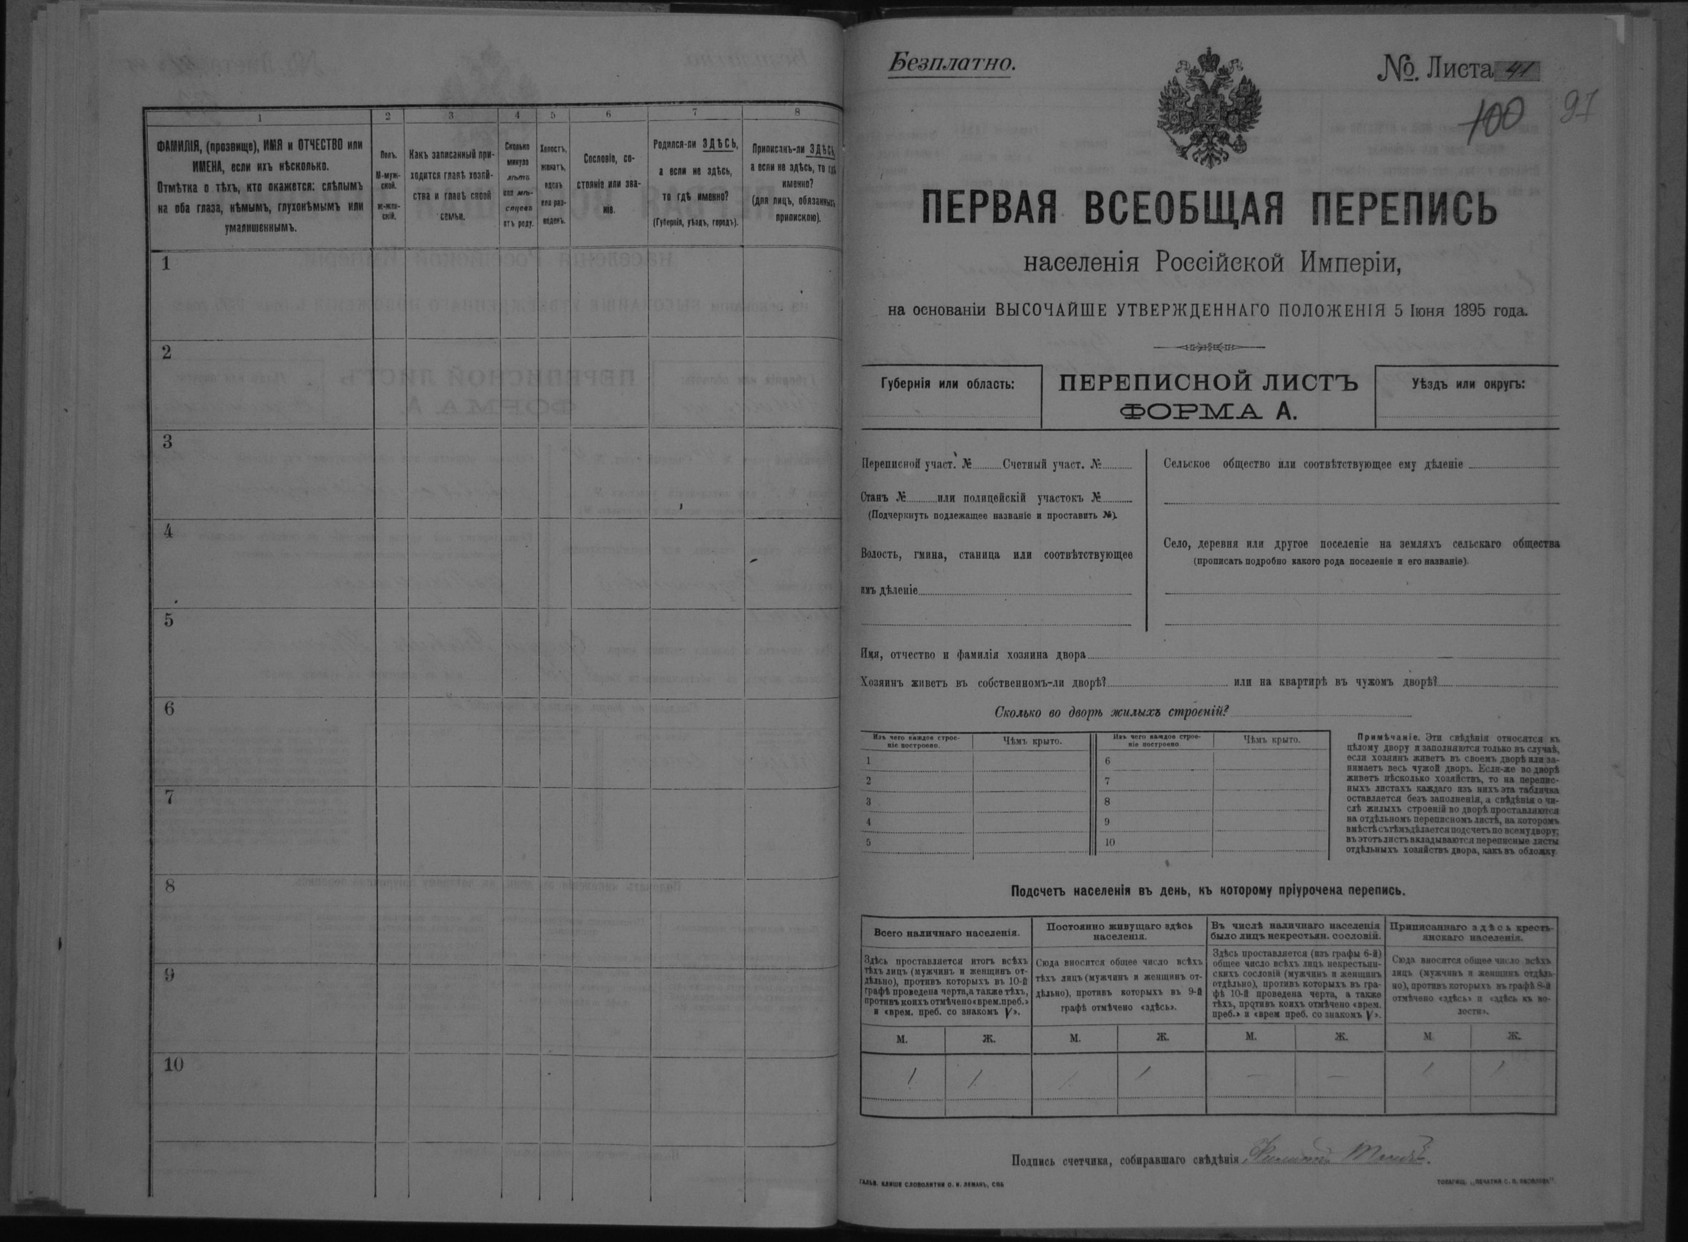 1
2
3
4
5
6
7
8
ФАМИЛІЯ, (прозвище), ИМЯ и ОТЧЕСТВО или
ИМЕНА, если ихъ нѣсколько.
Отмѣтка о тѣхъ, кто окажется: слѣпымъ
на оба глаза, нѣмымъ, глухонѣмымъ или
умалишеннымъ.
Полъ.
М-муж-
ской.
ж-жен-
скій.
Какъ записанный при-
ходится главѣ хозяй-
ства и главѣ своей
семьи.
Сколько
минуло
лѣтъ
или мѣ-
сяцевъ
отъ роду.
Холостъ,
женатъ,
вдовъ
или раз-
веденъ.
Сословіе, со-
стояніе или зва-
ніе.
Родился-ли ЗДѢСЬ,
а если не здѣсь,
то гдѣ именно?
(Губернія, уѣздъ, городъ).
Приписанъ-ли ЗДѢСЬ,
а если не здѣсь, то гдѣ
именно?
(для лицъ, обязанныхъ
припискою).
1
2
3
4
5
6
7
8
9
10
Безплатно.
№ Листа 41
100
97
ПЕРВАЯ ВСЕОБЩАЯ ПЕРЕПИСЬ
населенія Россійской Имперіи,
на основаніи ВЫСОЧАЙШЕ УТВЕРЖДЕННАГО ПОЛОЖЕНІЯ 5 Іюня 1895 года.
Губернія или область:
ПЕРЕПИСНОЙ ЛИСТЪ
ФОРМА А.
Уѣздъ или округъ:
Переписной участ. № Счетный участ. №
Станъ № или полицейскій участокъ №
(Подчеркнуть подлежащее названіе и проставить №).
Волость, гмина, станица или соотвѣтствующее
имъ дѣленіе
Сельское общество или соотвѣтствующее ему дѣленіе
Село, деревня или другое поселеніе на земляхъ сельскаго общества
(прописать подробно какого рода поселеніе и его названіе)
Имя, отчество и фамилія хозяина двора
Хозяинъ живетъ въ собственномъ-ли дворѣ? или на квартирѣ въ чужомъ дворѣ?
Сколько во дворѣ жилыхъ строеній?
Изъ чего каждое строе-
ніе построено.
Чѣмъ крыто.
Изъ чего каждое строе-
ніе построено
Чѣмъ крыто.
1
2
3
4
5
6
7
8
9
10
Примѣчаніе. Эти свѣдѣнія относятся къ
цѣлому двору и заполняются только въ случаѣ,
если хозяинъ живетъ въ своемъ дворѣ или за-
нимаетъ весь чужой дворъ. Если-же во дворѣ
живетъ нѣсколько хозяйствъ, то на перепис-
ныхъ листахъ каждаго изъ нихъ эта табличка
оставляется безъ заполненія, а свѣдѣнія о чи-
слѣ жилыхъ строеній во дворѣ проставляются
на отдѣльномъ переписномъ листѣ, на которомъ
вмѣстѣ съ тѣмъ дѣлается подсчетъ по всему двору;
въ этотъ листъ вкладываются переписные листы
отдѣльныхъ хозяйствъ двора, какъ въ обложку.
Подсчетъ населенія въ день, къ которому пріурочена перепись.
Всего наличнаго населенія.
Здѣсь проставляется итогъ всѣхъ
тѣхъ лицъ (мужчинъ и женщинъ от-
дѣльно), противъ которыхъ въ 10-й
графѣ проведена черта, а также тѣхъ,
противъ коихъ отмѣчено «врем. преб.»
и «врем. преб. со знакомъ V».
Постоянно живущаго здѣсь
населенія.
Сюда вносится общее число всѣхъ
тѣхъ лицъ (мужчинъ и женщинъ от-
дѣльно), противъ которыхъ въ 9-й
графѣ отмѣчено «здѣсь».
Въ числѣ наличнаго населенія
было лицъ некрестьян. сословій.
Здѣсь проставляется (изъ графы 6-й)
общее число всѣхъ лицъ некрестьян-
скихъ сословій (мужчинъ и женщинъ
отдѣльно), противъ которыхъ въ гра-
фѣ 10-й проведена черта, а также
тѣхъ, противъ коихъ отмѣчено «врем.
преб.» и «врем преб. со знакомъ V».
Приписаннаго здѣсь кресть-
янскаго населенія.
Сюда вносится общее число всѣхъ
лицъ (мужчинъ и женщинъ отдѣль-
но), противъ которыхъ въ графѣ 8-й
отмѣчено «здѣсь» и «здѣсь въ во-
лости».
М. Ж. М. Ж. М. Ж. М. Ж.
1 1 1 1 — — 1 1
Подпись счетчика, собиравшаго свѣдѣнія
ГАЛЬВ. КЛИШЕ СЛОВОЛИТНИ О. И. ЛЕМАНЪ, СПБ
ТОВАРИЩ. „ПЕЧАТНЯ С. П. ЯКОВЛЕВА"